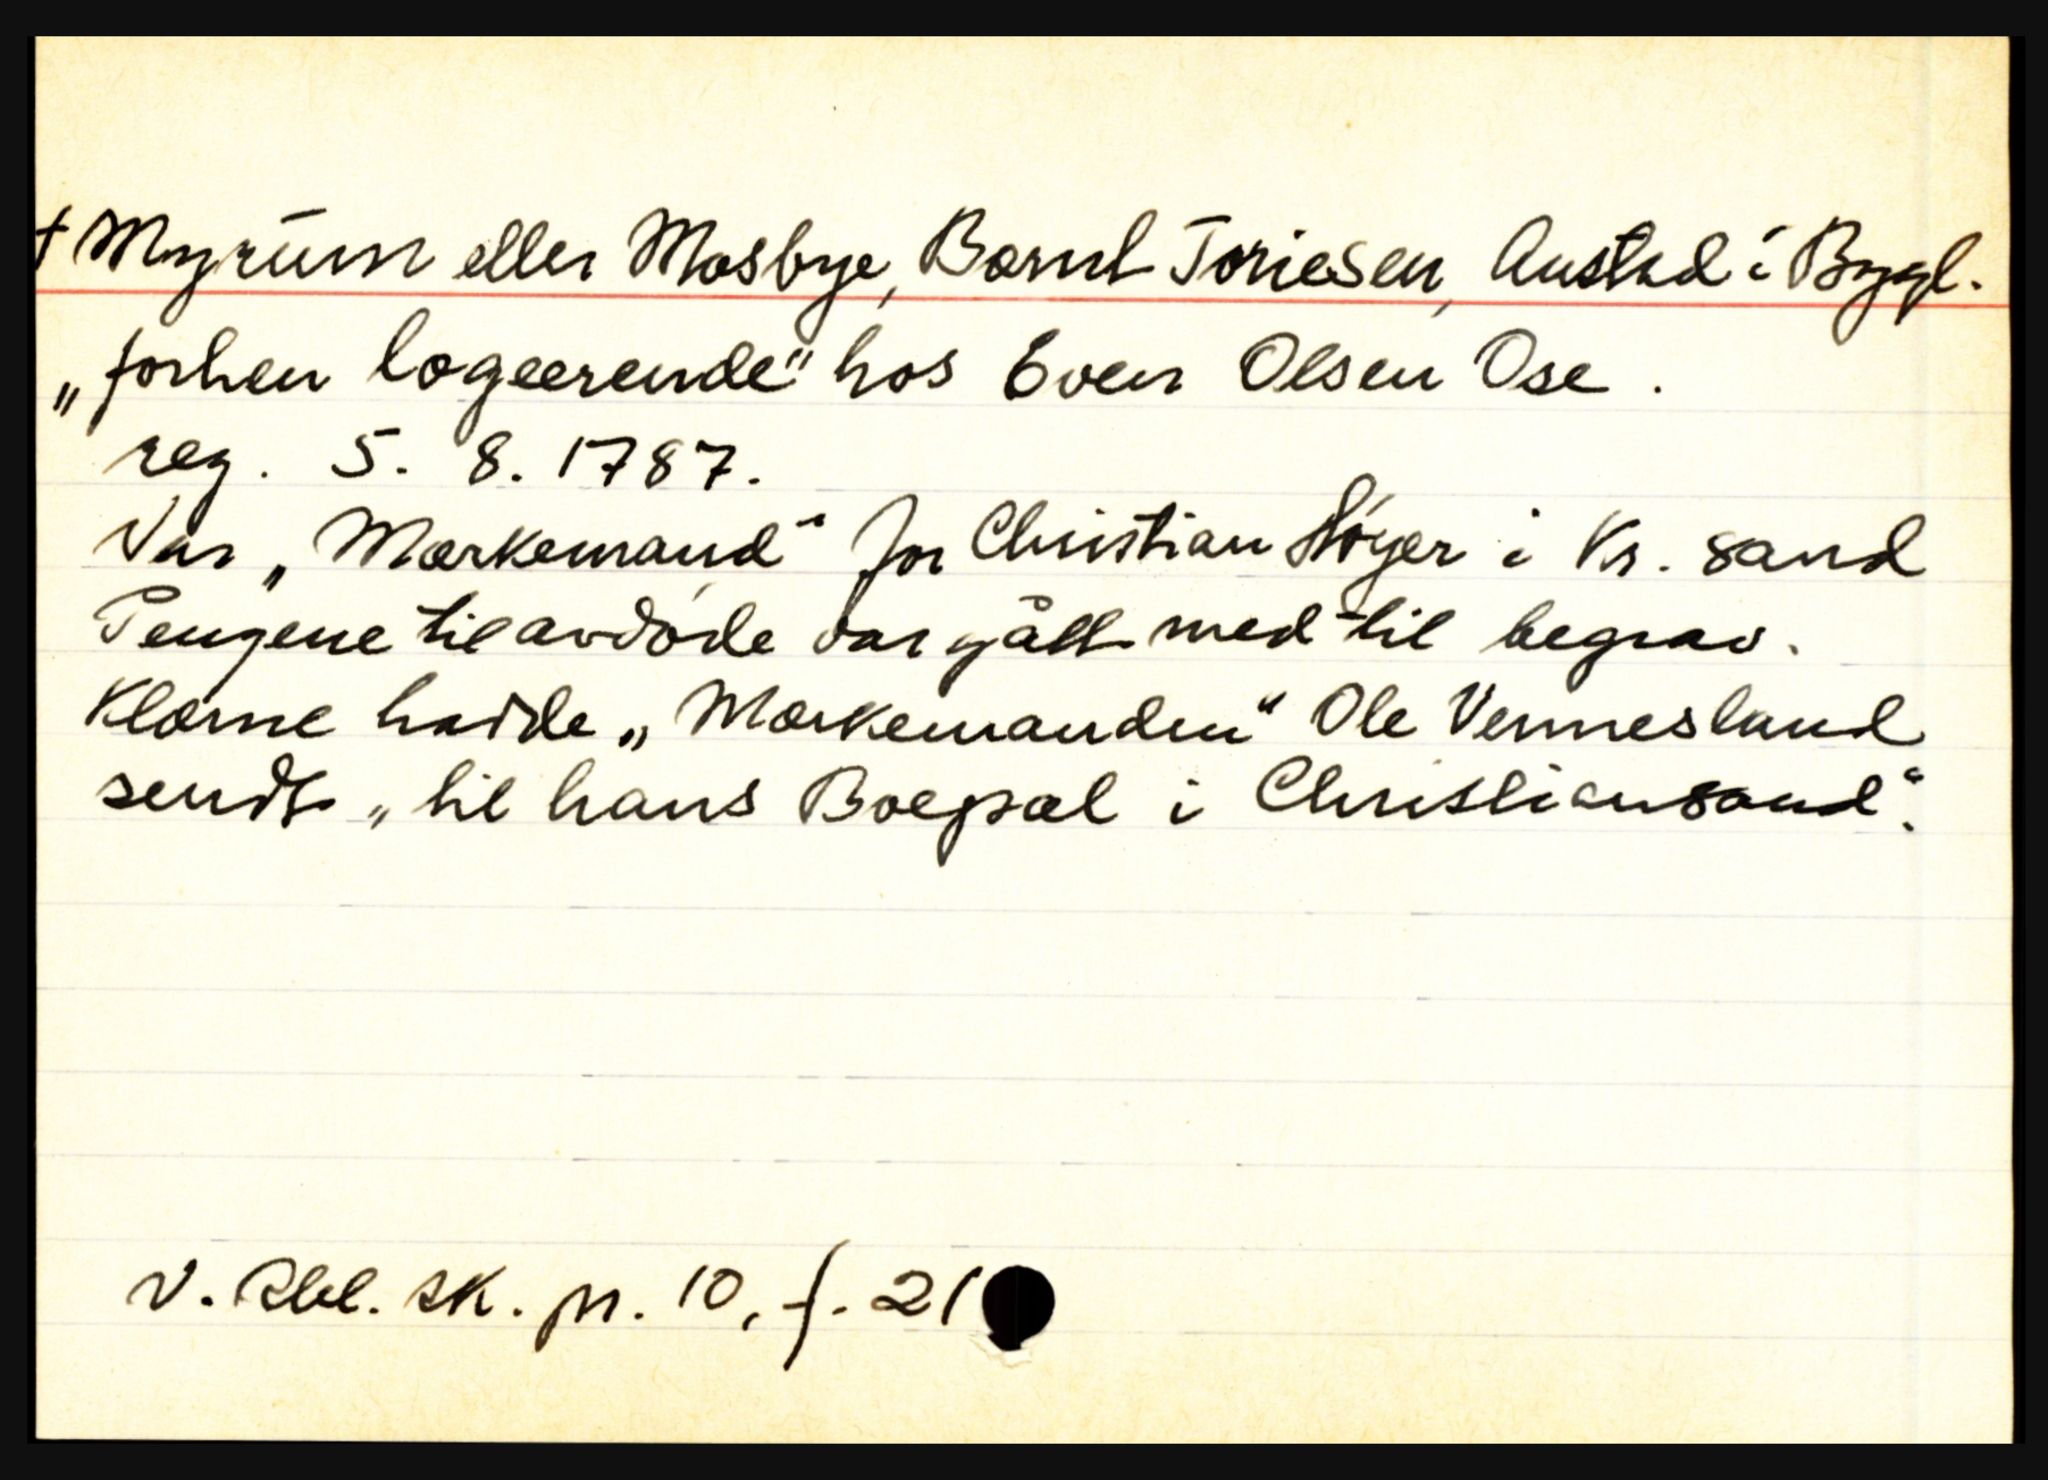 † Myrum eller Mosbye, Bærnt Toriesen, Austad i Bygl.
„forhen logeerende" hos Even Olsen Ose.
reg. 5. 8. 1787.
Var „Mærkemand" for Christian Høyer i Kr. sand
Pengene til avdøde var gått med til begrav.
Klærne hadde „Mærkemanden" Ole Vennesland
sendt „til hans Boepæl i Christiansand".
V. Rbl. sk. pr. 10, f. 21